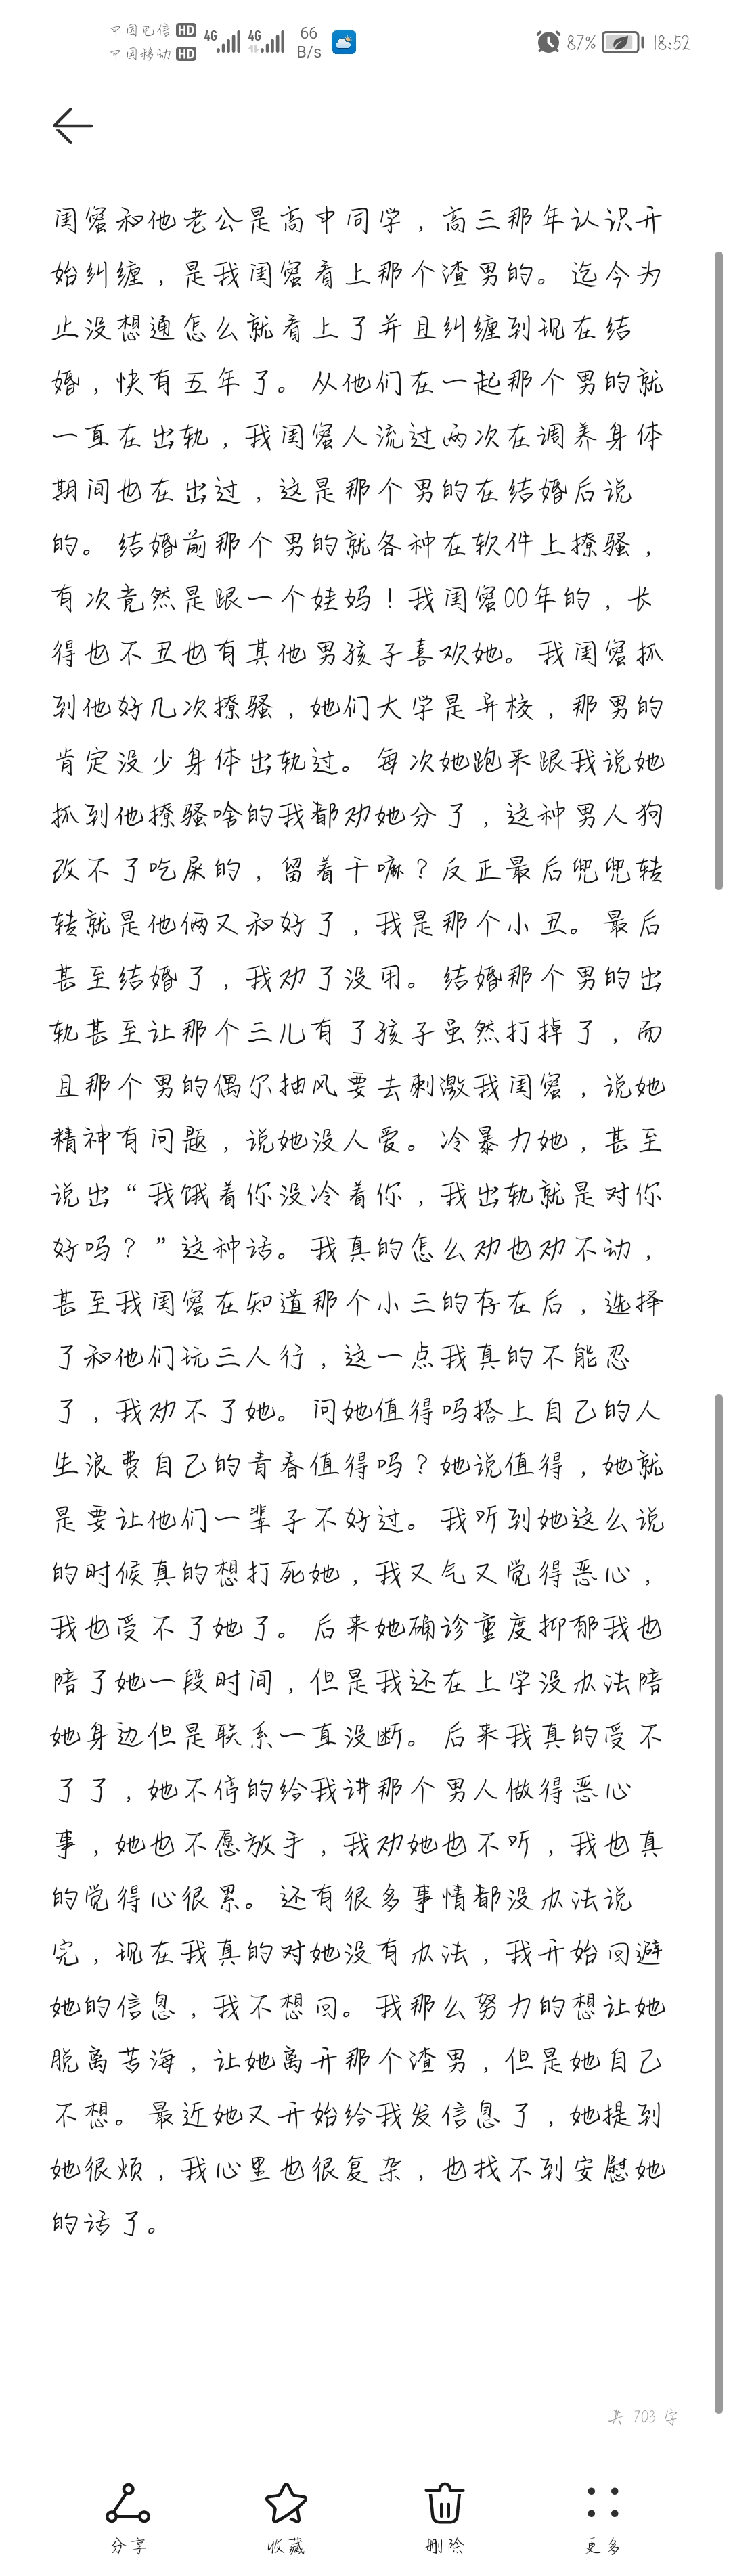 中国电信 HD 4G 4G 66 B/s 87% 18:52
中国移动 HD
闺蜜和他老公是高中同学，高三那年认识开
始纠缠，是我闺蜜看上那个渣男的。迄今为
止没想通怎么就看上了并且纠缠到现在结
婚，快有五年了。从他们在一起那个男的就
一直在出轨，我闺蜜人流过两次在调养身体
期间也在出过，这是那个男的在结婚后说
的。结婚前那个男的就各种在软件上撩骚，
有次竟然是跟一个娃妈！我闺蜜00年的，长
得也不丑也有其他男孩子喜欢她。我闺蜜抓
到他好几次撩骚，她们大学是异校，那男的
肯定没少身体出轨过。每次她跑来跟我说她
抓到他撩骚啥的我都劝她分了，这种男人狗
改不了吃屎的，留着干嘛？反正最后兜兜转
转就是他俩又和好了，我是那个小丑。最后
甚至结婚了，我劝了没用。结婚那个男的出
轨甚至让那个三儿有了孩子虽然打掉了，而
且那个男的偶尔抽风要去刺激我闺蜜，说她
精神有问题，说她没人爱。冷暴力她，甚至
说出“我饿着你没冷着你，我出轨就是对你
好吗？”这种话。我真的怎么劝也劝不动，
甚至我闺蜜在知道那个小三的存在后，选择
了和他们玩三人行，这一点我真的不能忍
了，我劝不了她。问她值得吗搭上自己的人
生浪费自己的青春值得吗？她说值得，她就
是要让他们一辈子不好过。我听到她这么说
的时候真的想打死她，我又气又觉得恶心，
我也受不了她了。后来她确诊重度抑郁我也
陪了她一段时间，但是我还在上学没办法陪
她身边但是联系一直没断。后来我真的受不
了了，她不停的给我讲那个男人做得恶心
事，她也不愿放手，我劝她也不听，我也真
的觉得心很累。还有很多事情都没办法说
完，现在我真的对她没有办法，我开始回避
她的信息，我不想回。我那么努力的想让她
脱离苦海，让她离开那个渣男，但是她自己
不想。最近她又开始给我发信息了，她提到
她很烦，我心里也很复杂，也找不到安慰她
的话了。
共 703 字
分享 收藏 删除 更多